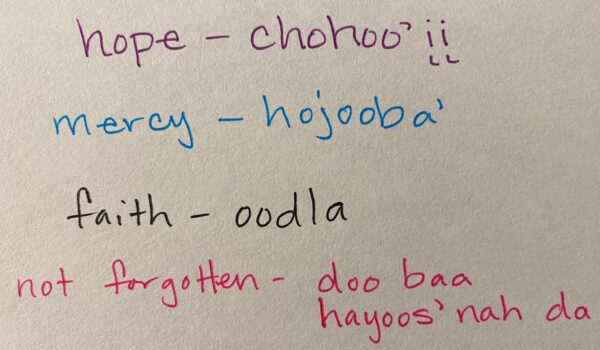 hope - chohoo'įį
mercy - hojooba'
faith - oodla
not forgotten - doo baa
hayoos'nah da